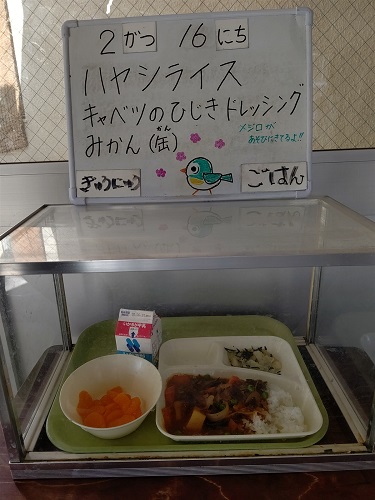 2がつ 16にち
ハヤシライス
キャベツのひじきドレッシング
みかん(缶)
かん
メジロが
あそびにきてるよ!!
ぎゅうにゅう
ごはん